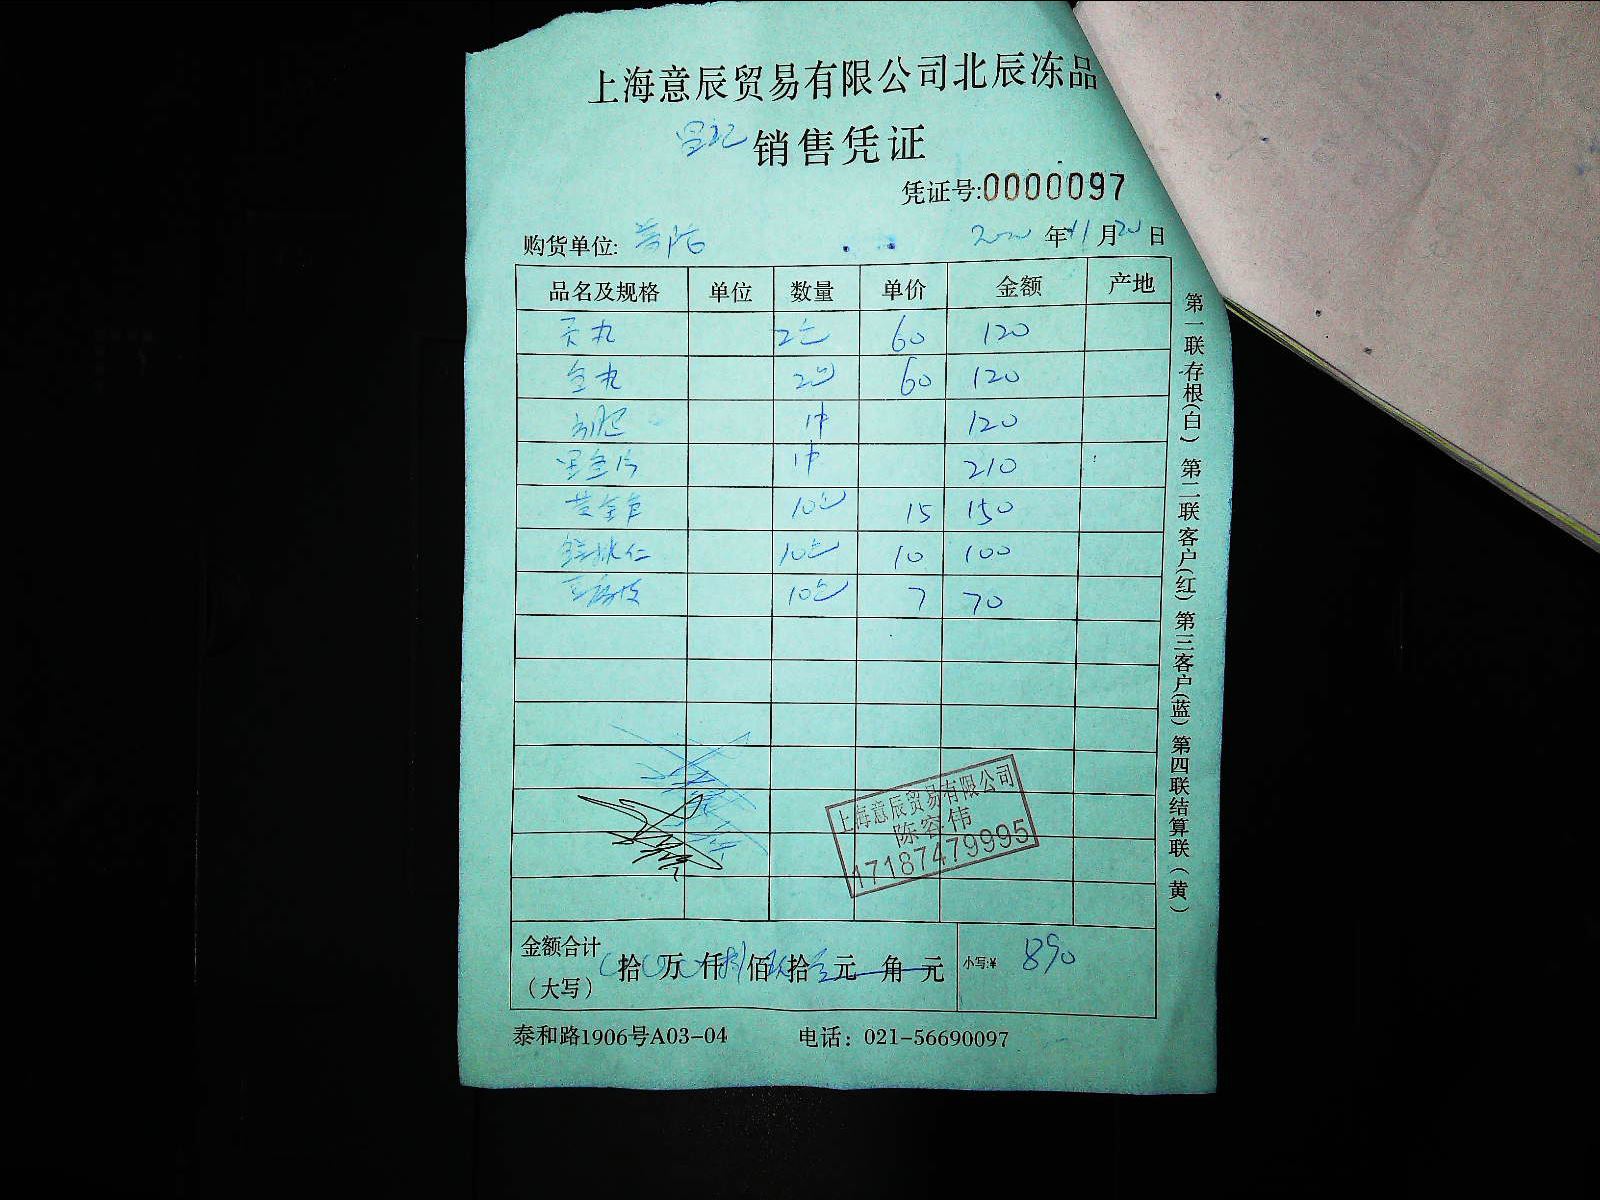 上海意辰贸易有限公司北辰冻品
销售凭证
凭证号:0000097
购货单位:
2020年11月20日
品名及规格 单位 数量 单价 金额 产地
丸 2包 60 120
鱼丸 2包 60 120
1件 120
1件 210
黄金 10包 15 150
仁 10包 10 100
豆腐皮 10包 7 70
上海意辰贸易有限公司
陈容伟
17187479995
金额合计
(大写) 拾 万 仟 捌佰 玖拾 元 角 元 小写:¥ 890
泰和路1906号A03-04 电话：021-56690097
第一联存根(白) 第二联客户(红) 第三客户(蓝) 第四联结算联(黄)